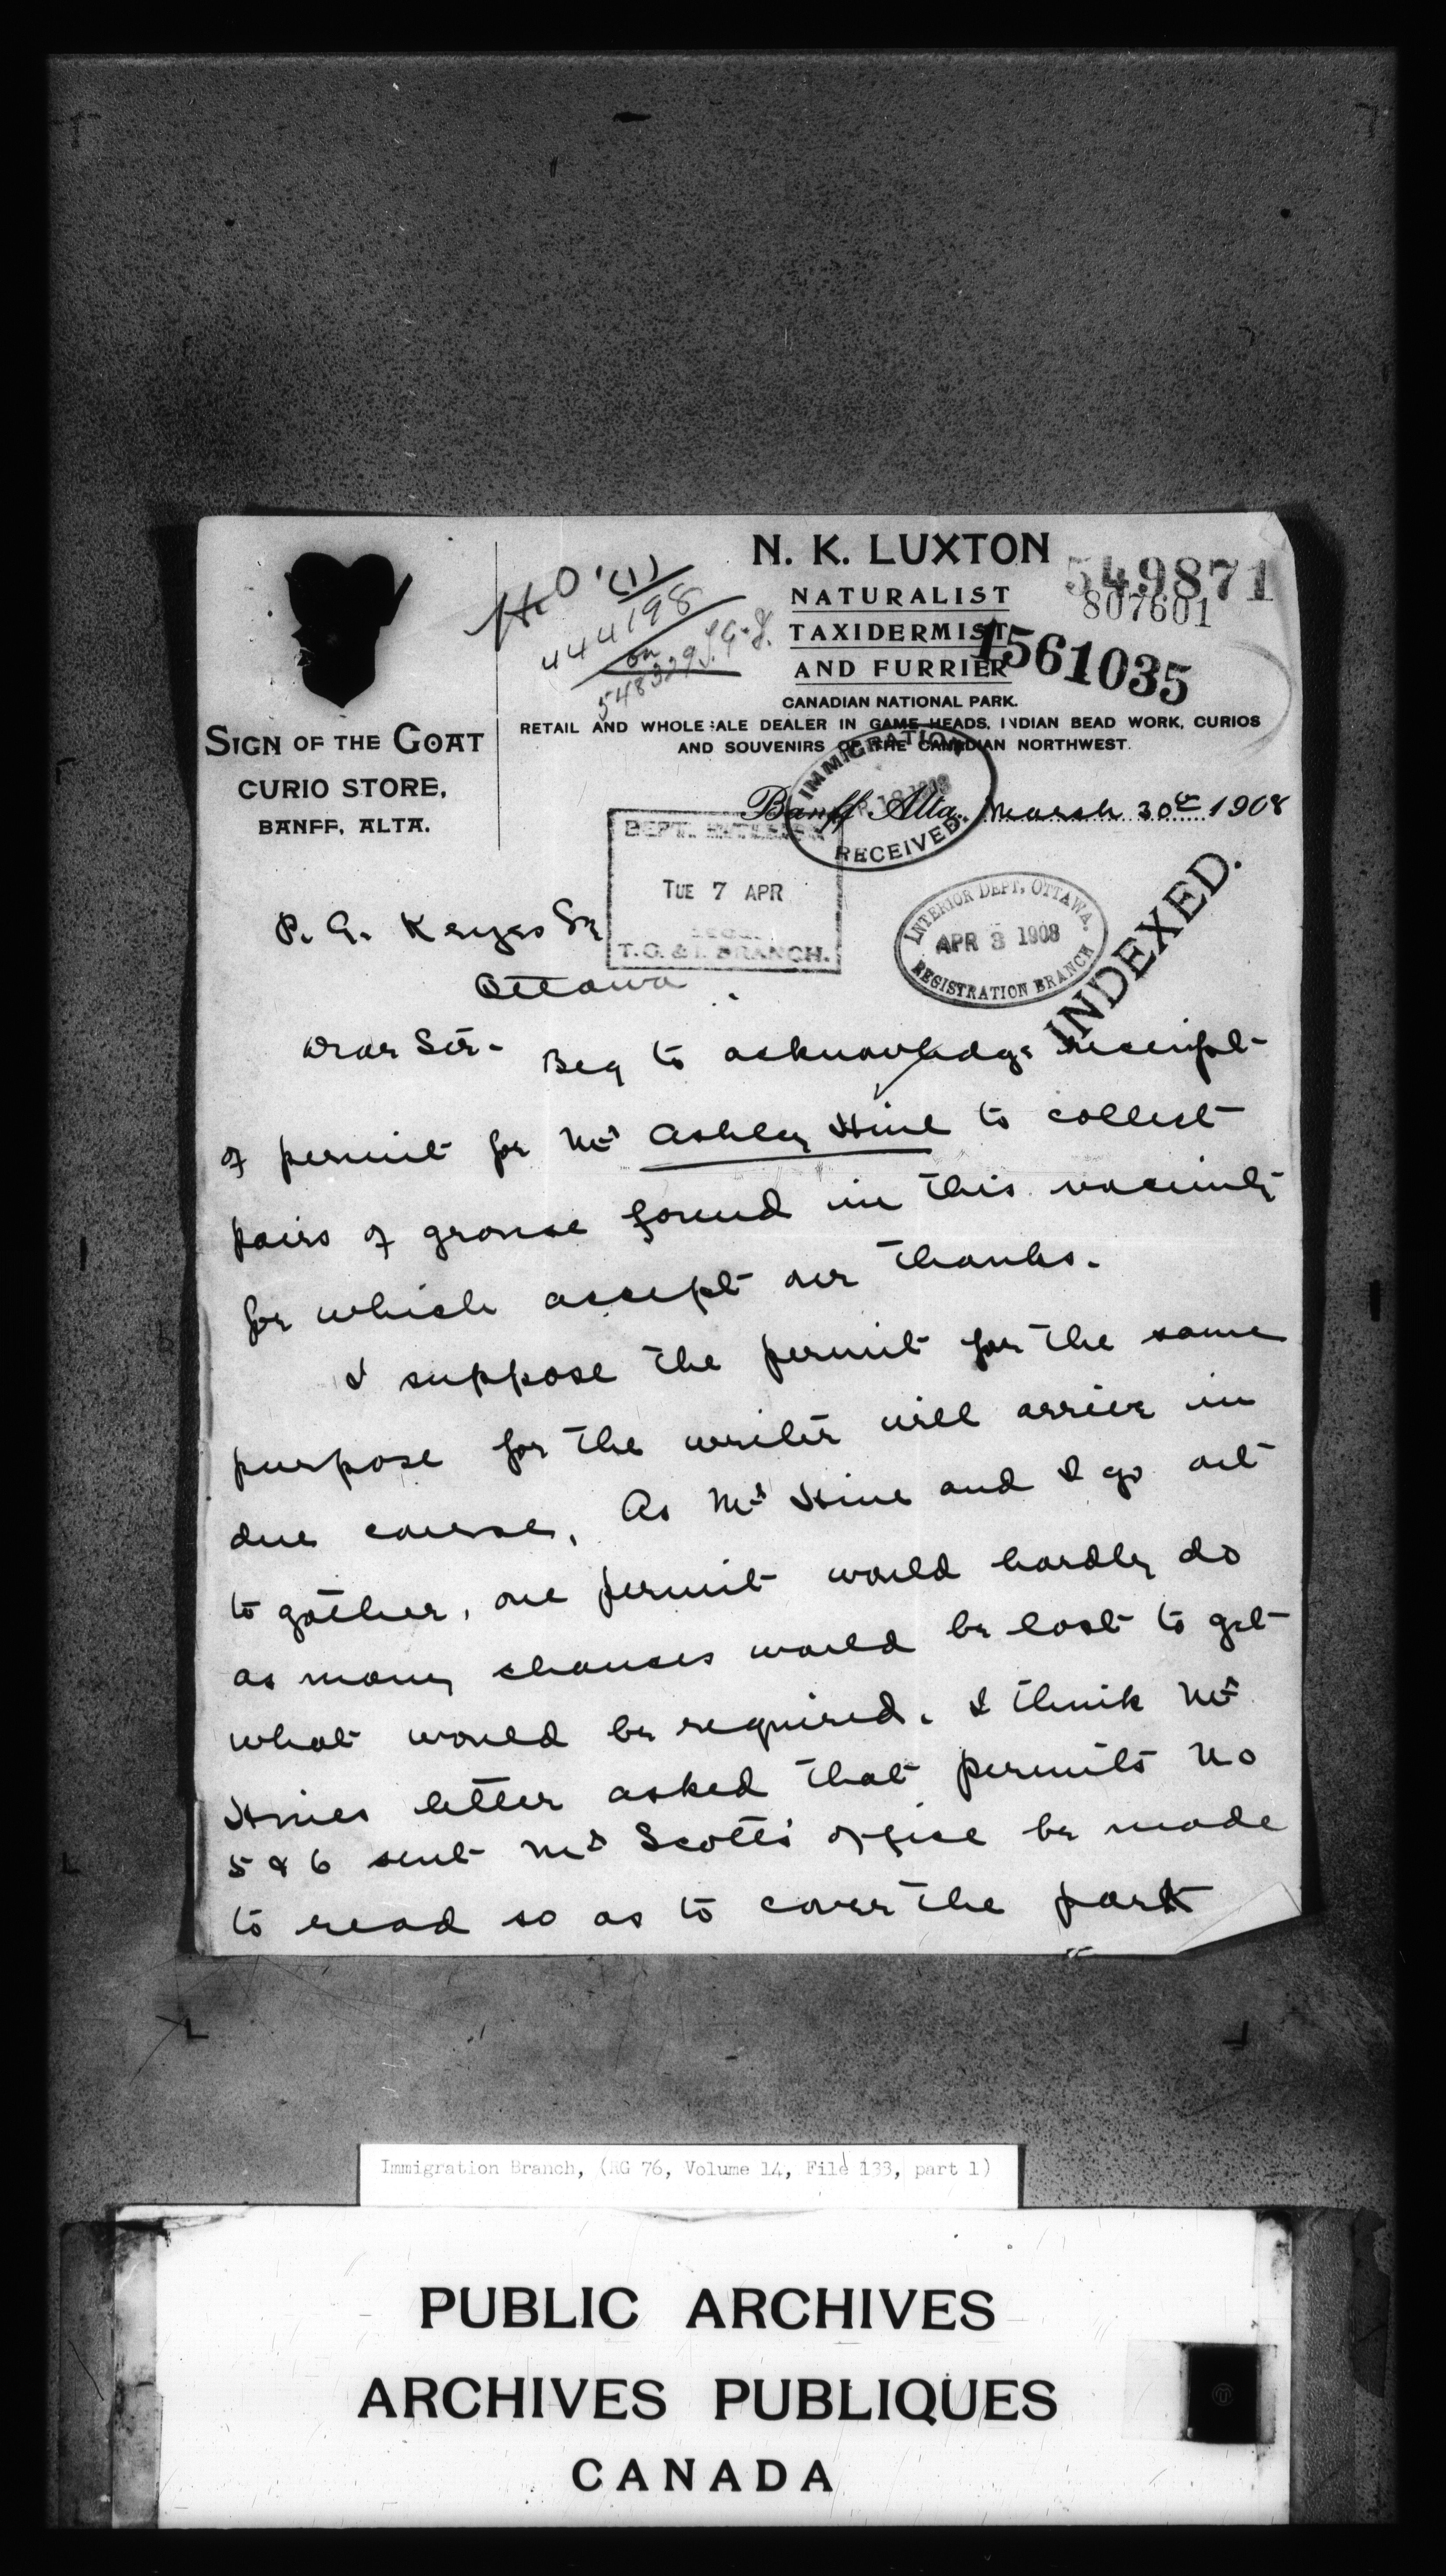 N. K. LUXTON
NATURALIST
TAXIDERMIST
AND FURRIER
CANADIAN NATIONAL PARK.
RETAIL AND WHOLESALE DEALER IN GAME HEADS, INDIAN BEAD WORK, CURIOS
AND SOUVENIRS OF THE CANADIAN NORTHWEST.
549871
807601
1561035
(1)
444198
on
548329
SIGN OF THE GOAT
CURIO STORE,
BANFF, ALTA.
Banff Alta. March 30th 1908
IMMIGRATION
RECEIVED.
DEPT.
TUE 7 APR
T.O. & I. BRANCH.
INTERIOR DEPT, OTTAWA.
APR 3 1908
REGISTRATION BRANCH
INDEXED.
P. G. Keyes Sr
Ottawa
Dear Sir- Beg to acknowledge receipt
of permit for Mr Ashley Hine to collect
pairs of grouse found in this vacinity
for which accept our thanks.
I suppose the permit for the same
purpose for the writer will arrive in
due course, As Mr Hine and I go out
to gather, one permit would hardly do
as many chances would be lost to get
what would be required. I think Mr
Hines letter asked that permits No
5 & 6 sent Mr Scotts office be made
to read so as to cover the park
Immigration Branch, (RG 76, Volume 14, File 133, part 1)
PUBLIC ARCHIVES
ARCHIVES PUBLIQUES
CANADA